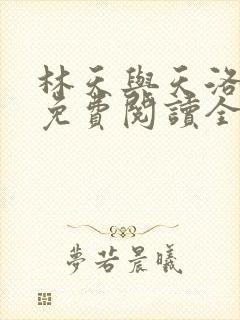 林天與天洛
免費閱讀全
夢若晨曦